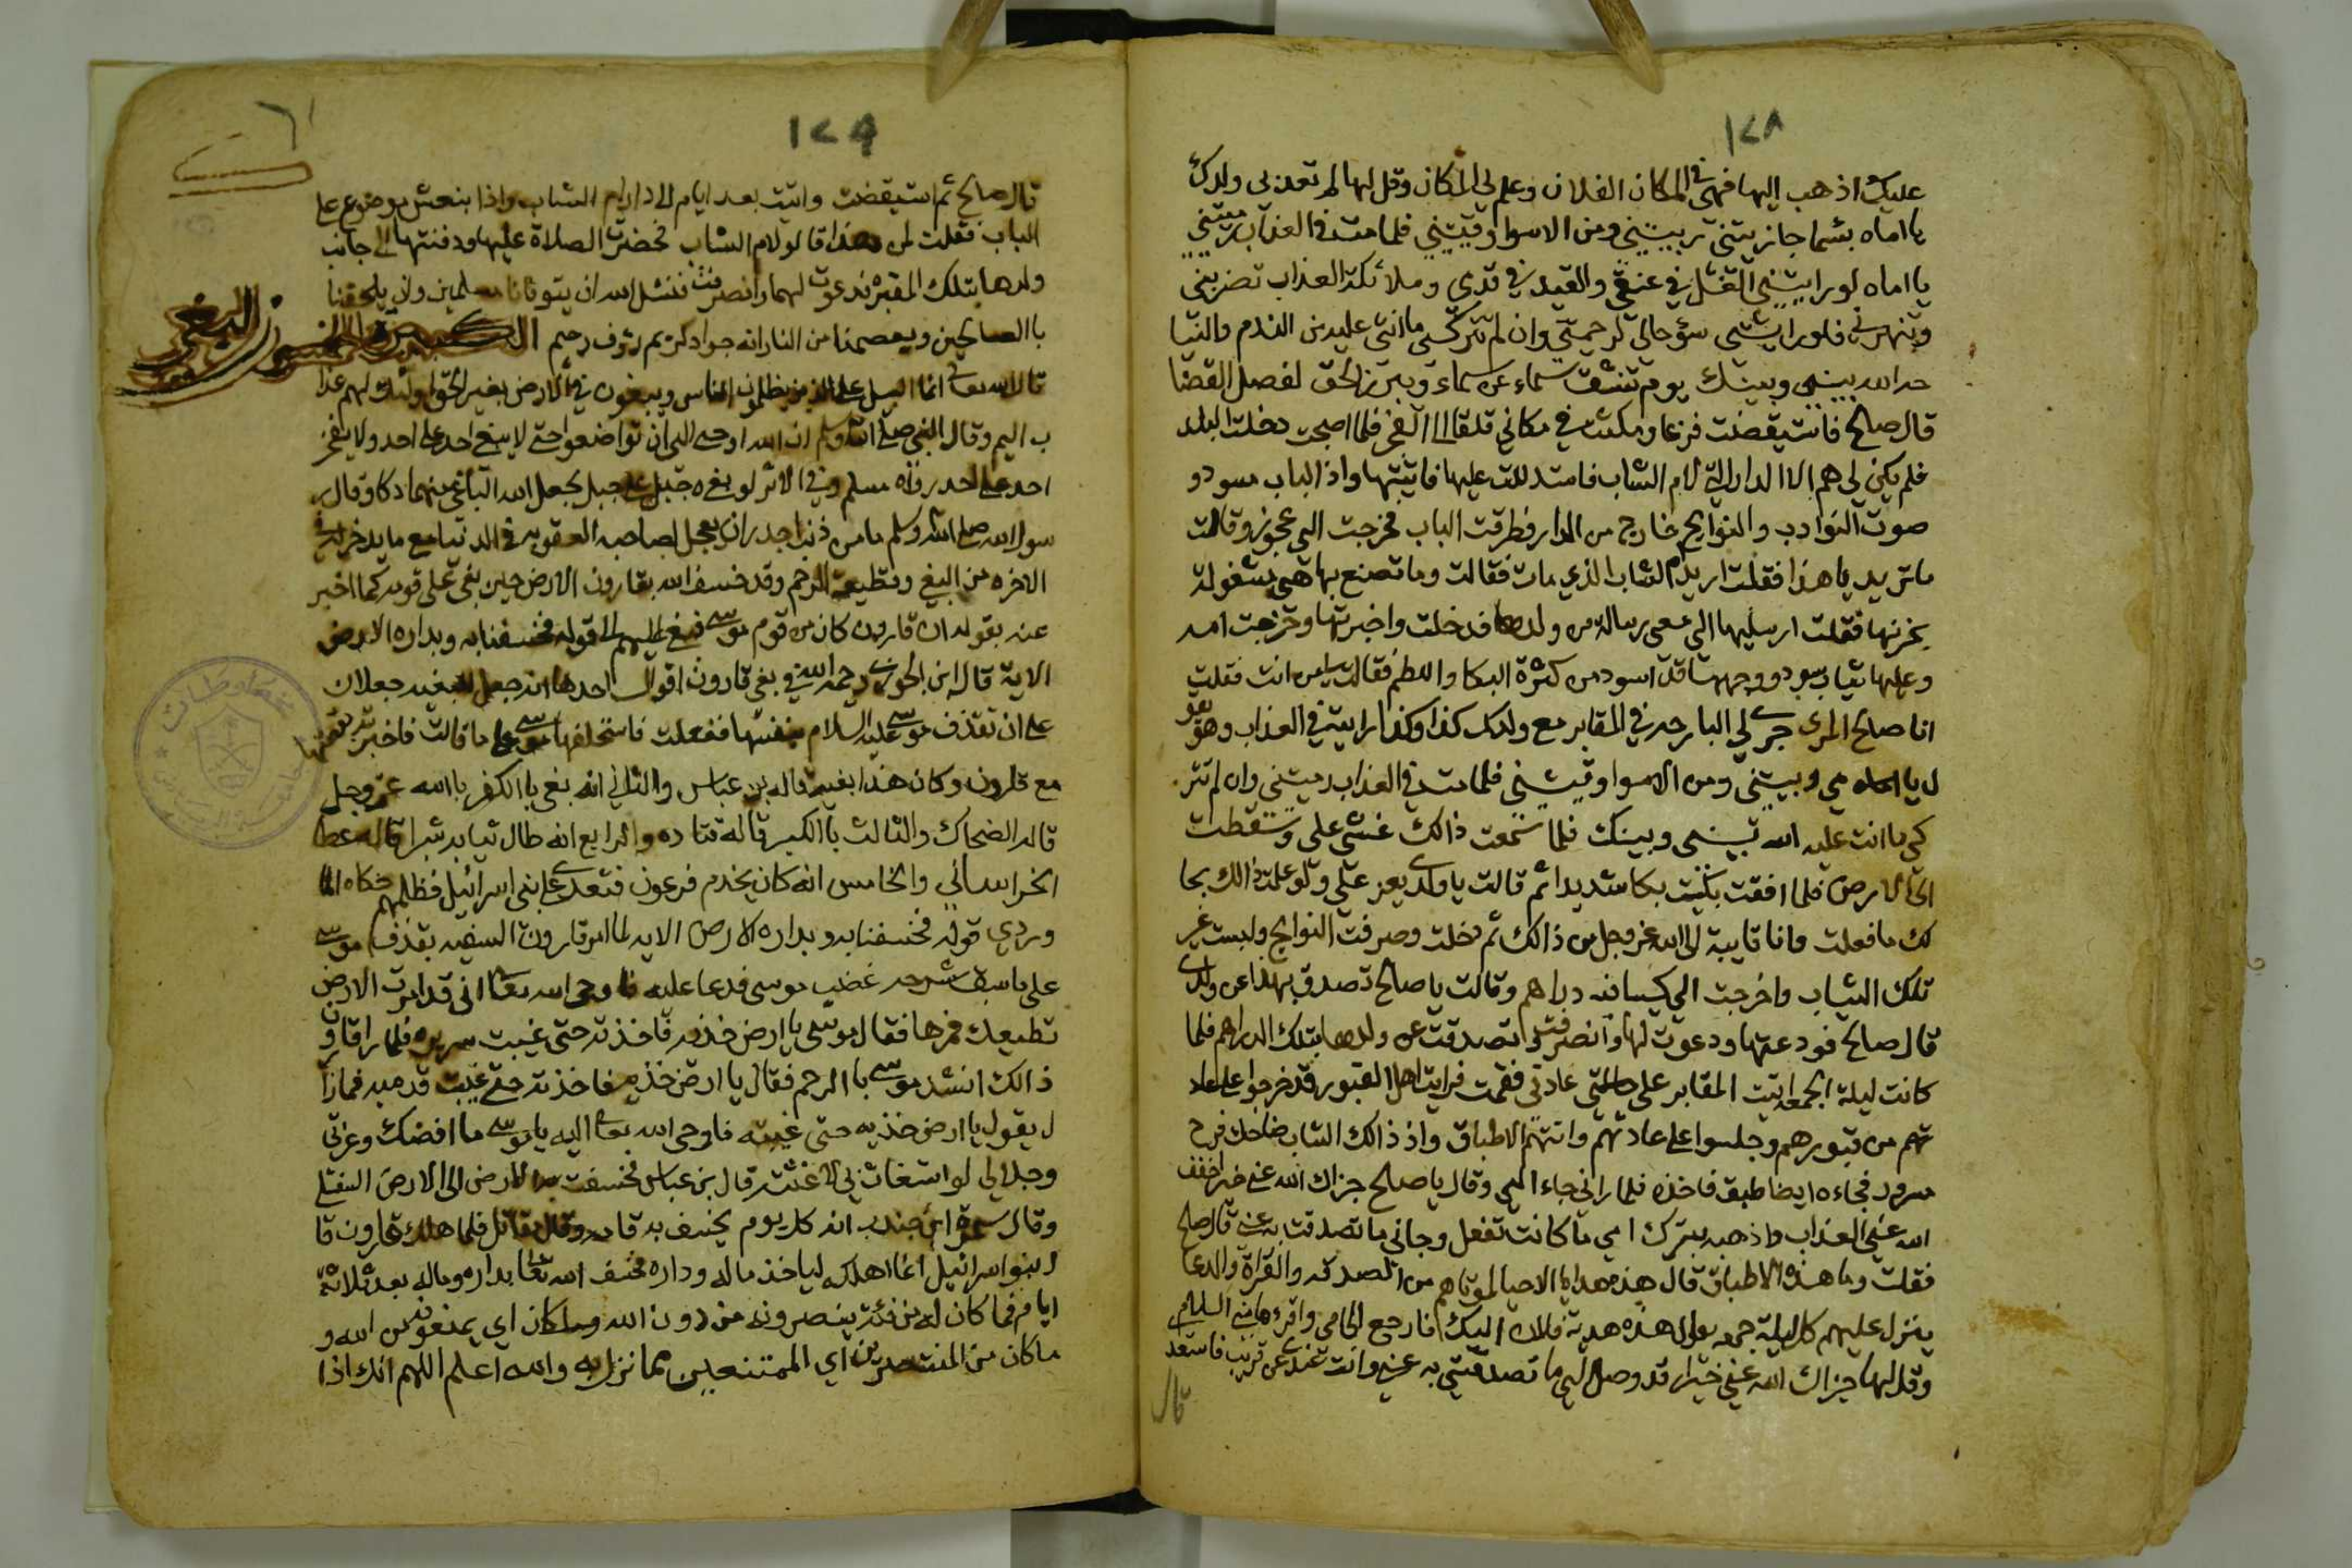 ١٢٨
عليك اذهب اليها فهي في المكان الفلان وعلم لي المكان وقل لها لم تعذبي ولدك
يا اماه بئسما جازيتني تربيتيني ومن الاسوا وقيتيني فلما مت في العذاب رميتيني
يا اماه لو رايتيني الغل في عنقي والقيد في قدمي وملائكة العذاب تضربني
وتنهرني فلو رايتي سؤ حالي لرحمتي وان لم تتركي ما انتي عليه من الندم والنيا
حه الله بيني وبينك يوم تشقق سماء عن سماء ويبرز الحق لفصل القضا
قال صالح فاستيقضت فزعا ومكثت في مكاني قلقا الى الفجر فلما اصبحت دخلت البلد
فلم يكن لي هم الا الدار الي لام الشاب فاستدللت عليها فاتيتها واذا الباب مسود و
صوت النوادب والنوايح خارج من الدار فطرقت الباب فخرجت الي عجوز وقالت
ما تريد يا هذا فقلت اريد ام الشاب الذي مات فقالت وما تصنع بها هي مشغولة
بحزنها فقلت ارسليها الي معي رسالة من ولدها فدخلت واخبرتها وخرجت امه
وعليها ثياب سود ووجهها قد اسود من كثرة البكا واللطم فقالت من انت فقلت
انا صالح المري جرى لي البارحه في المقابر مع ولدك كذا وكذا رايته في العذاب وهو يقو
ل يا امي ربيتيني ومن الاسوا وقيتيني فلما مت في العذاب رميتيني وان لم تتر
كي ما انت عليه الله بيني وبينك فلما سمعت ذالك غشي علي وسقطت
الى الارض فلما افقت بكيت بكا شديدا ثم قالت يا ولدي يعز علي ولو علمت ذالك بحا
لك ما فعلت وانا تايبة الى الله عز وجل من ذالك ثم دخلت وصرفت النوايح ولبست غير
تلك الثياب واخرجت الي كيسا فيه دراهم وقالت يا صالح تصدق بهذا عن ولدي
قال صالح فودعتها ودعوت لها وانصرفت وتصدقت عن ولدها بتلك الدراهم فلما
كانت ليلة الجمعه اتيت المقابر على عادتي فقمت فرايت اهل القبور قد خرجوا على عاد
تهم من قبورهم وجلسوا على عادتهم واتتهم الاطباق واذ ذالك الشاب ضاحك فرح
مسرور فجاءه ايضا طبق فاخذه فلما راني جاء الي وقال يا صالح جزاك الله عني خيرا خفف
الله عني العذاب واذهبه بترك امي ما كانت تفعل وجاني ما تصدقت به عني قال صالح
فقلت وما هذه الاطباق قال هذه هدايا الاحيا لموتاهم من الصدقه والقراة والدعا
ينزل عليهم كل ليلة جمعه يقال هذه هدية فلان اليك فارجع الى امي واقرءها مني السلام
وقل لها جزاك الله عني خيرا قد وصل الي ما تصدقتي به عني وانت عندي عن قريب فاستعد
قال
١٢٩
قال صالح ثم استيقضت واتيت بعد ايام الى دار ام الشاب واذا بنعش موضوع على
الباب فقلت لمن هذا قالو لام الشاب فحضرت الصلاة عليها ودفنتها الى جانب
ولدها بتلك المقبره فدعوت لهما وانصرفت فنسئل الله ان يتوفانا مسلمين وان يلحقنا
با الصالحين ويعصمنا من النار انه جواد كريم رؤف رحيم
البغي
قال الله تعالى انما السبيل على الذين يظلمون الناس ويبغون في الارض بغير الحق اولئك لهم عذا
ب اليم وقال النبي صلى الله وسلم ان الله اوحى الي ان تواضعوا حتى لا يبغي احد على احد ولا يفخر
احد على احد رواه مسلم وفي الاثر لو بغى جبل على جبل لجعل الله الباغي منهما دكا وقال ر
سول الله صلى الله وسلم ما من ذنب اجدر ان يعجل لصاحبه العقوبه في الدنيا مع ما يدخر له في
الاخره من البغي وقطيعة الرحم وقد خسف الله بقارون الارض حين بغى على قومه كما اخبر
عنه بقوله ان قارون كان من قوم موسى فبغى عليهم الى قوله فخسفنا به وبداره الارض
الاية قال ابن الجوزي رحمه الله في بغي قارون اقوال احدها انه جعل للبغيه جعلا ان
على ان تقذف موسى عليه السلام بنفسها ففعلت فاستحلفها موسى على ما قالت فاخبرته بقصتها
مع قارون وكان هذا بغيه قاله بن عباس والثاني انه بغى با الكفر با الله عز وجل
قاله الضحاك والثالث با الكبر قاله قتاده والرابع انه طال ثيابه شبرا قاله عطا
الخراساني والخامس انه كان يخدم فرعون فتعدى على بني اسرائيل فظلمهم حكاه الما
وردي قوله فخسفنا به وبداره الارض الايه لما امر قارون السفيه بقذف موسى
على ما سبق شرحه غضب موسى فدعا عليه فاوحى الله تعا اني قد امرت الارض
تطيعك فمرها فقال موسى يا ارض خذيه فاخذته حتى غيبت سريره فلما را قارون
ذالك انشد موسى با الرحم فقال يا ارض خذيه فاخذته حتى غيبت قدميه فما زا
ل يقول يا ارض خذيه حتى غيبته فاوحى الله تعا اليه يا موسى ما افضك وعزتي
وجلالي لو استغاث بي لاغثته قال بن عباس فخسفت به الارض الى الارض السفلى
وقال سمرة ابن جندب انه كل يوم يخسف به قامه وقال مقاتل فلما هلك قارون قا
ل بنو اسرائيل انما اهلكه لياخذ ماله وداره فخسف الله تعا بداره وماله بعد ثلاثة
ايام فما كان له من فئة ينصرونه من دون الله وما كان اي يمنعونه من الله و
ما كان من المنتصرين اي الممتنعين مما نزل به والله اعلم اللهم انك اذا